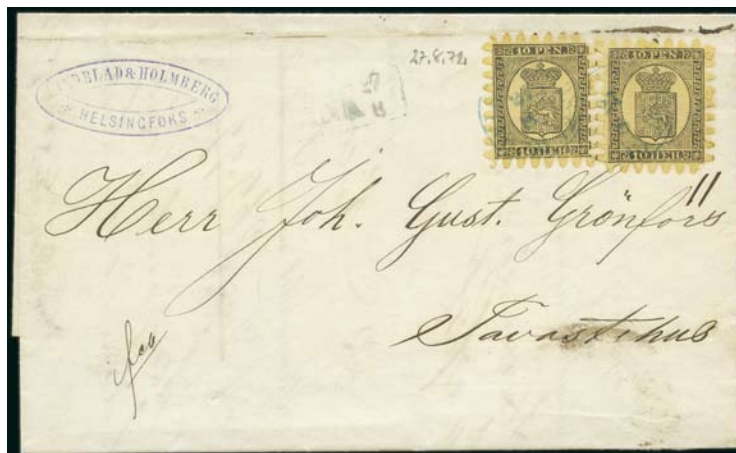 LINDBLAD & HOLMBERG
HELSINGFORS
27.8.72
27
8
10 PEN.
10 ПЕН.
10 PEN.
10 ПЕН.
Herr Joh. Gust. Grönfors
Tavastehus